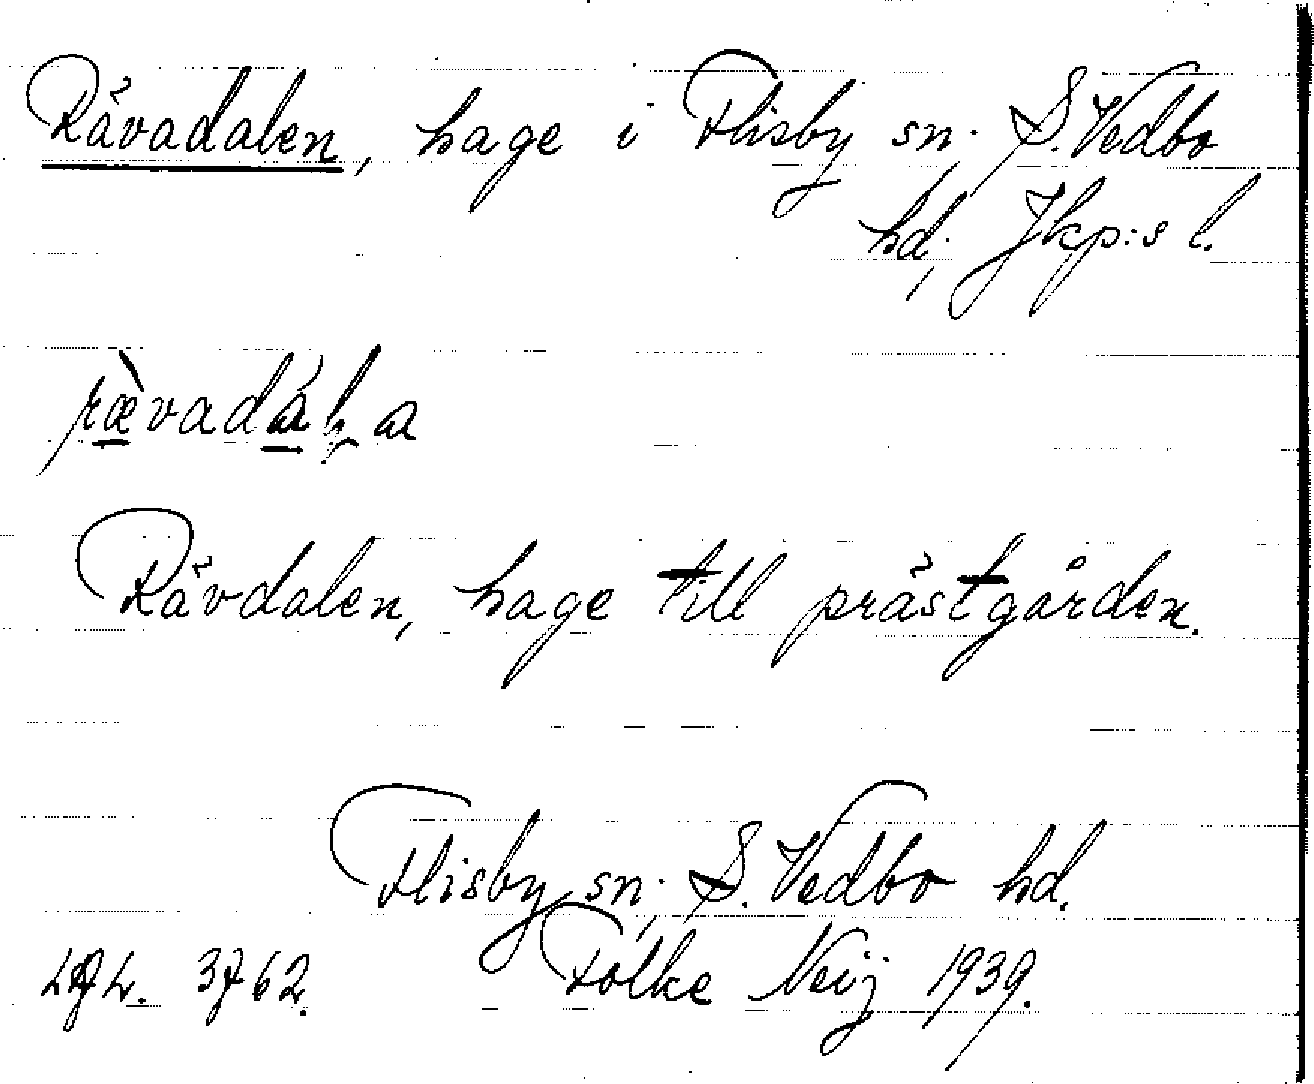 Rävadalen, hage i Flisby sn. S. Vedbo
hd, Jkp:s l.
rævadála
Rävdalen, hage till prästgården.
Flisby sn, S. Vedbo hd.
3762. Folke Neij 1939.